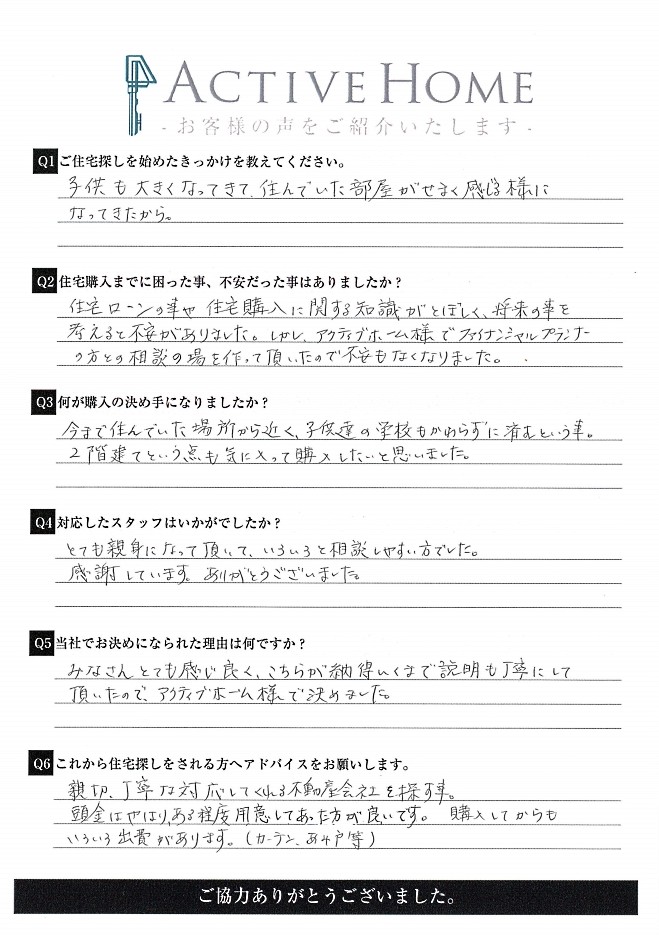 ACTIVE HOME
- お客様の声をご紹介いたします -
Q1 ご住宅探しを始めたきっかけを教えてください。
子供も大きくなってきて、住んでいた部屋がせまく感じる様に
なってきたから。
Q2 住宅購入までに困った事、不安だった事はありましたか?
住宅ローンの事や住宅購入に関する知識がとぼしく、将来の事を
考えると不安がありました。しかし、アクティブホーム様でファイナンシャルプランナー
の方との相談の場を作って頂いたので不安もなくなりました。
Q3 何が購入の決め手になりましたか?
今まで住んでいた場所から近く、子供達の学校もかわらずに済むという事。
2階建てという点も気に入って購入したいと思いました。
Q4 対応したスタッフはいかがでしたか?
とても親身になって頂いて、いろいろと相談しやすい方でした。
感謝しています。ありがとうございました。
Q5 当社でお決めになられた理由は何ですか?
みなさんとても感じ良く、こちらが納得いくまで説明も丁寧にして
頂いたので、アクティブホーム様で決めました。
Q6 これから住宅探しをされる方へアドバイスをお願いします。
親切、丁寧な対応してくれる不動産会社を探す事。
頭金はやはり、ある程度用意してあった方が良いです。 購入してからも
いろいろ出費があります。(カーテン、あみ戸等)
ご協力ありがとうございました。